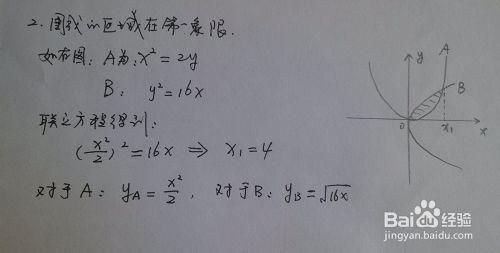 2. 围成的区域在第一象限.
如右图: A为: x² = 2y
B: y² = 16x
联立方程得到:
(x²/2)² = 16x ⇒ x₁ = 4
对于A: y_A = x²/2, 对于B: y_B = √16x
y
A
B
0
x₁
x
Baidu 经验
jingyan.baidu.com